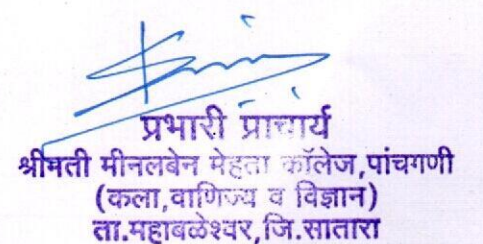 प्रभारी प्राचार्य
श्रीमती मीनलबेन मेहता कॉलेज,पांचगणी
(कला,वाणिज्य व विज्ञान)
ता.महाबळेश्वर,जि.सातारा